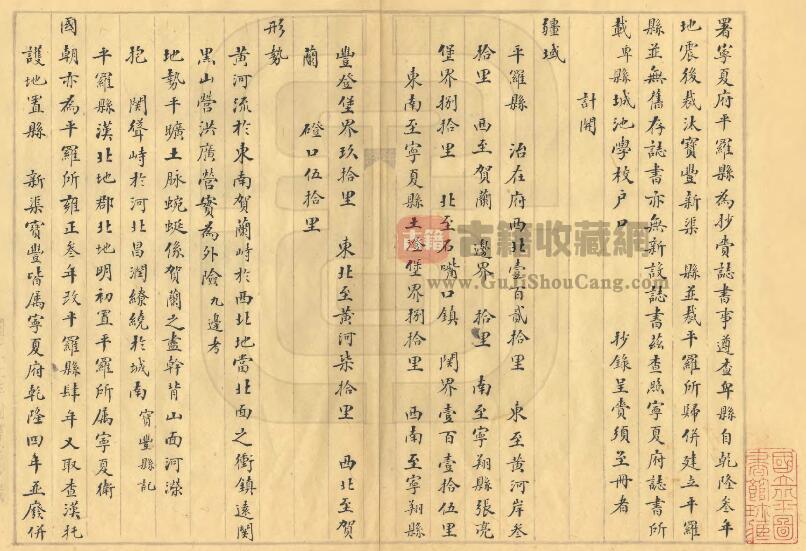 署寧夏府平羅縣為抄賫誌書事遵查卑縣自乾隆叁年
地震後裁汰寶豐新渠 縣並裁平羅所歸併建立平羅
縣並無舊存誌書亦無新設誌書茲查照寧夏府誌書所
載卑縣城池學校戶口 抄錄呈賫須至冊者
計開
疆域
平羅縣 治在府西北壹百貳拾里 東至黃河岸叁
拾里 西至賀蘭 邊界 拾里 南至寧翔縣張亮
堡界捌拾里 北至石嘴口鎮 関界壹百壹拾伍里
東南至寧夏縣王澄堡界捌拾里 西南至寧翔縣
豐登堡界玖拾里 東北至黃河柒拾里 西北至賀
蘭 磴口伍拾里
形勢
黃河流於東南賀蘭峙於西北地當北面之衝鎮遠関
黑山營洪廣營實為外險九邊考
地勢平曠土脉蜿蜒像賀蘭之盡幹背山面河濼
抱 関聳峙於河北昌潤繚繞於城南寶豐縣記
平羅縣漢北地郡北地明初置平羅所属寧夏衛
國朝亦為平羅所雍正叁年改平羅縣肆年又取查漢托
護地置縣 新渠寶豐皆属寧夏府乾隆四年並廢併
古籍
古籍收藏網
www.GuJiShouCang.com